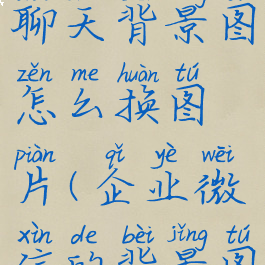 聊天背景图
zěn me huàn tú
怎么换图
piàn qǐ yè wēi
片(企业微
xìn de bèi jǐng tú
信的背景图